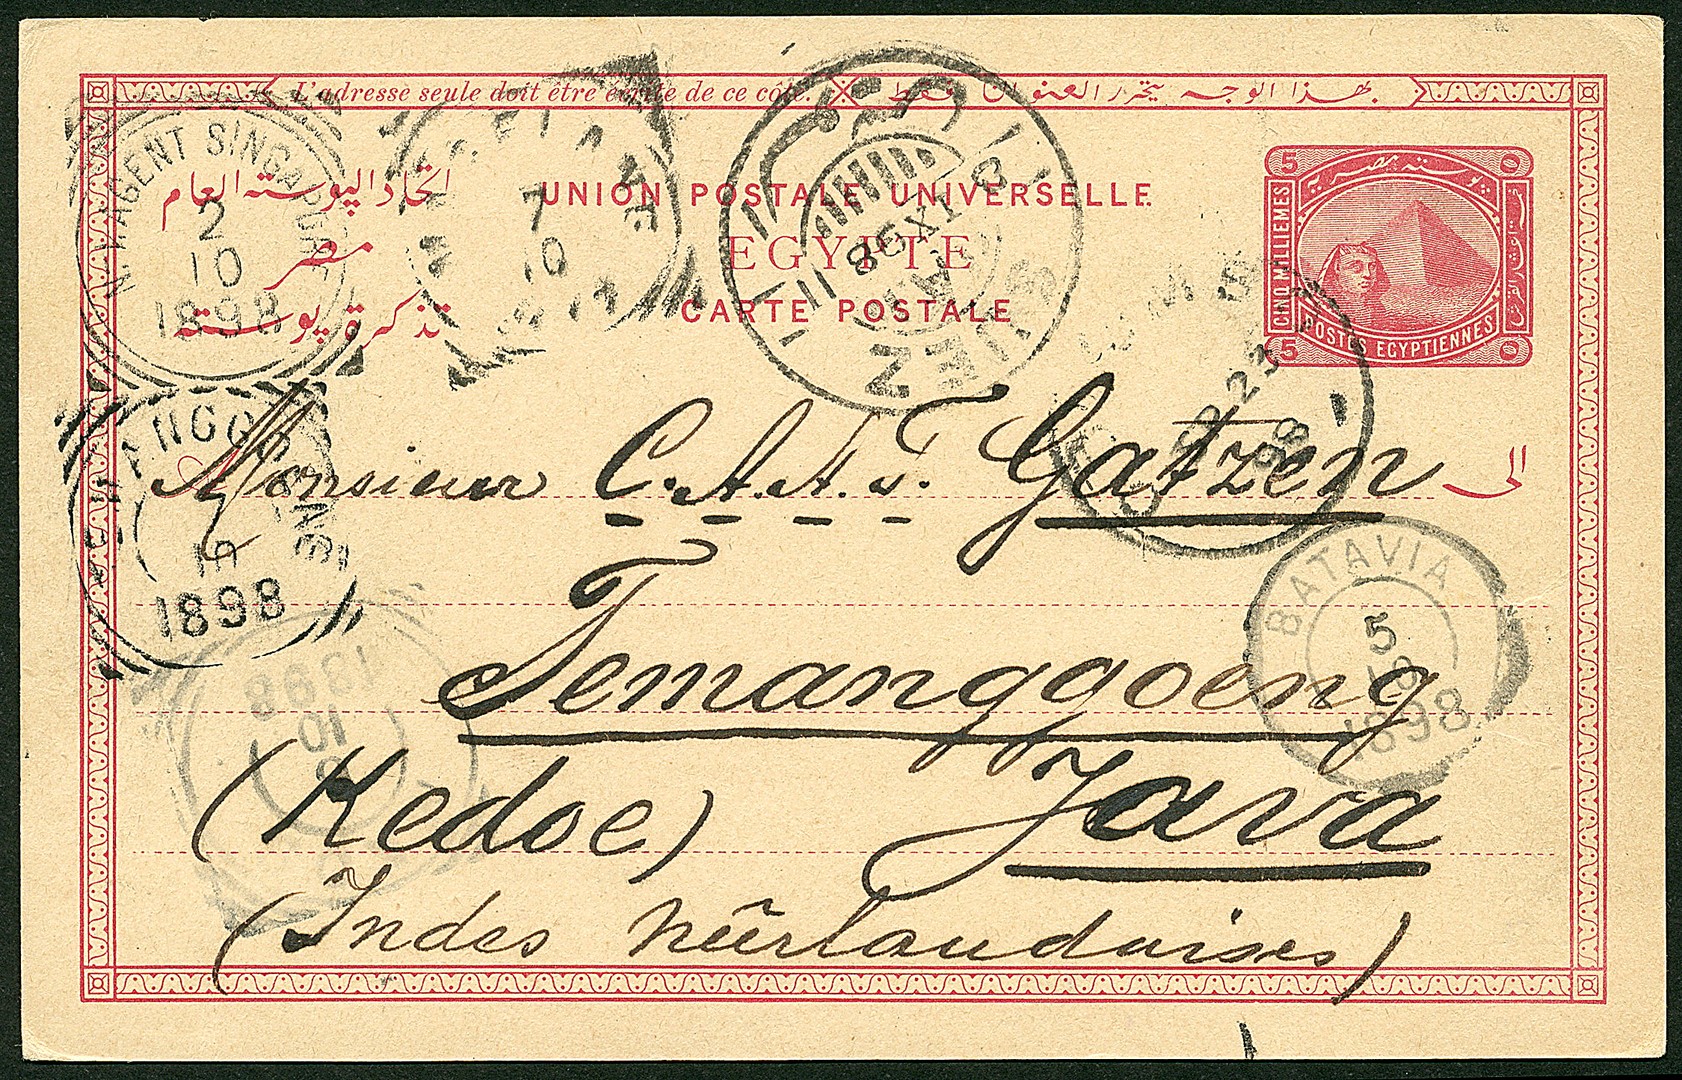 L'adresse seule doit être écrite de ce côté.
بهذا الوجه يتحرر العنوان فقط
N.I. AGENT SINGAPORE
2
10
1898
7
10
اتحاد البوسته العام
مصر
تذكرة بوسته
UNION POSTALE UNIVERSELLE
EGYPTE
CARTE POSTALE
98
XI
5
بوسته مصريه
CINQ MILLIEMES
POSTES EGYPTIENNES
5
23
98
الى
Monsieur C.A.A.T. Gatzen
Temanggoeng
(Kedoe) Java
(Indes néerlandaises)
10
1898
BATAVIA
5
10
1898
1898
10